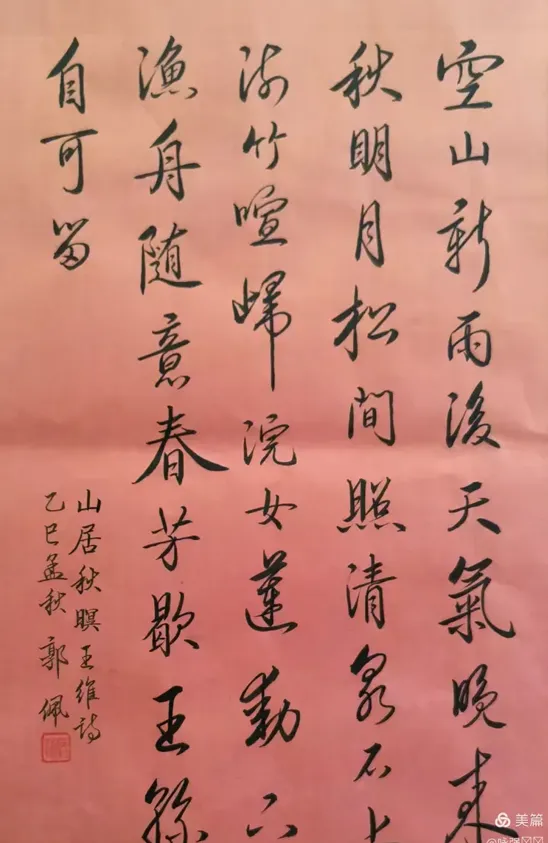 空山新雨後天氣晚来
秋明月松間照清泉石上
流竹喧歸浣女蓮動下
漁舟随意春芳歇王孫
自可留
山居秋暝王維詩
乙巳孟秋 郭佩
美篇